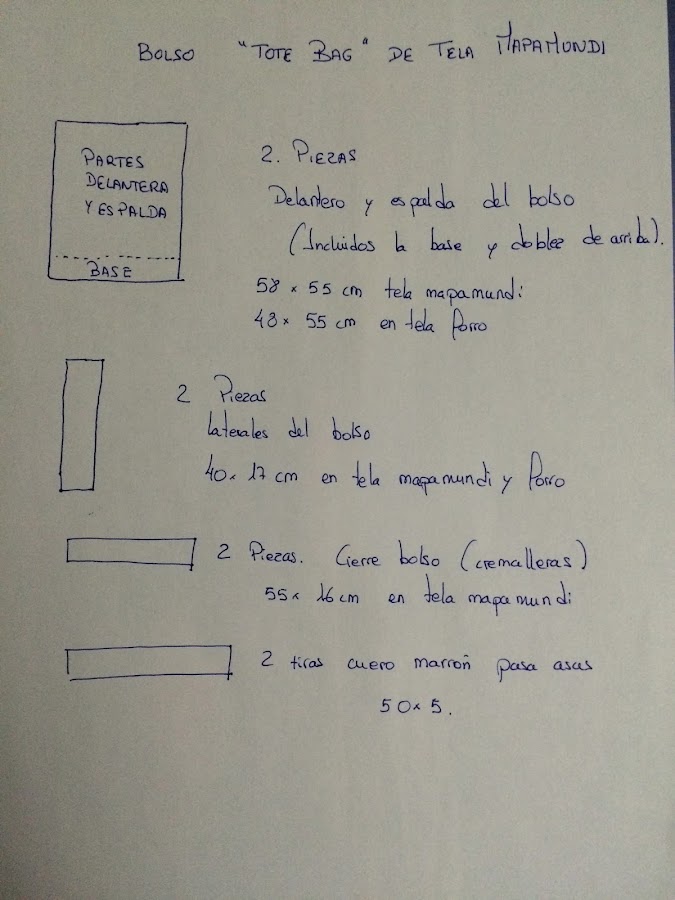 BOLSO "TOTE BAG" DE TELA MAPAMUNDI
PARTES
DELANTERA
Y ESPALDA
BASE
2. PIEZAS
Delantero y espalda del bolso
(Incluidos la base y doblez de arriba).
58 x 55 cm tela mapamundi
48 x 55 cm en tela Forro
2 Piezas
laterales del bolso
40 x 17 cm en tela mapamundi y Forro
2 Piezas. Cierre bolso (cremalleras)
55 x 16 cm en tela mapamundi
2 tiras cuero marron para asas
50 x 5.